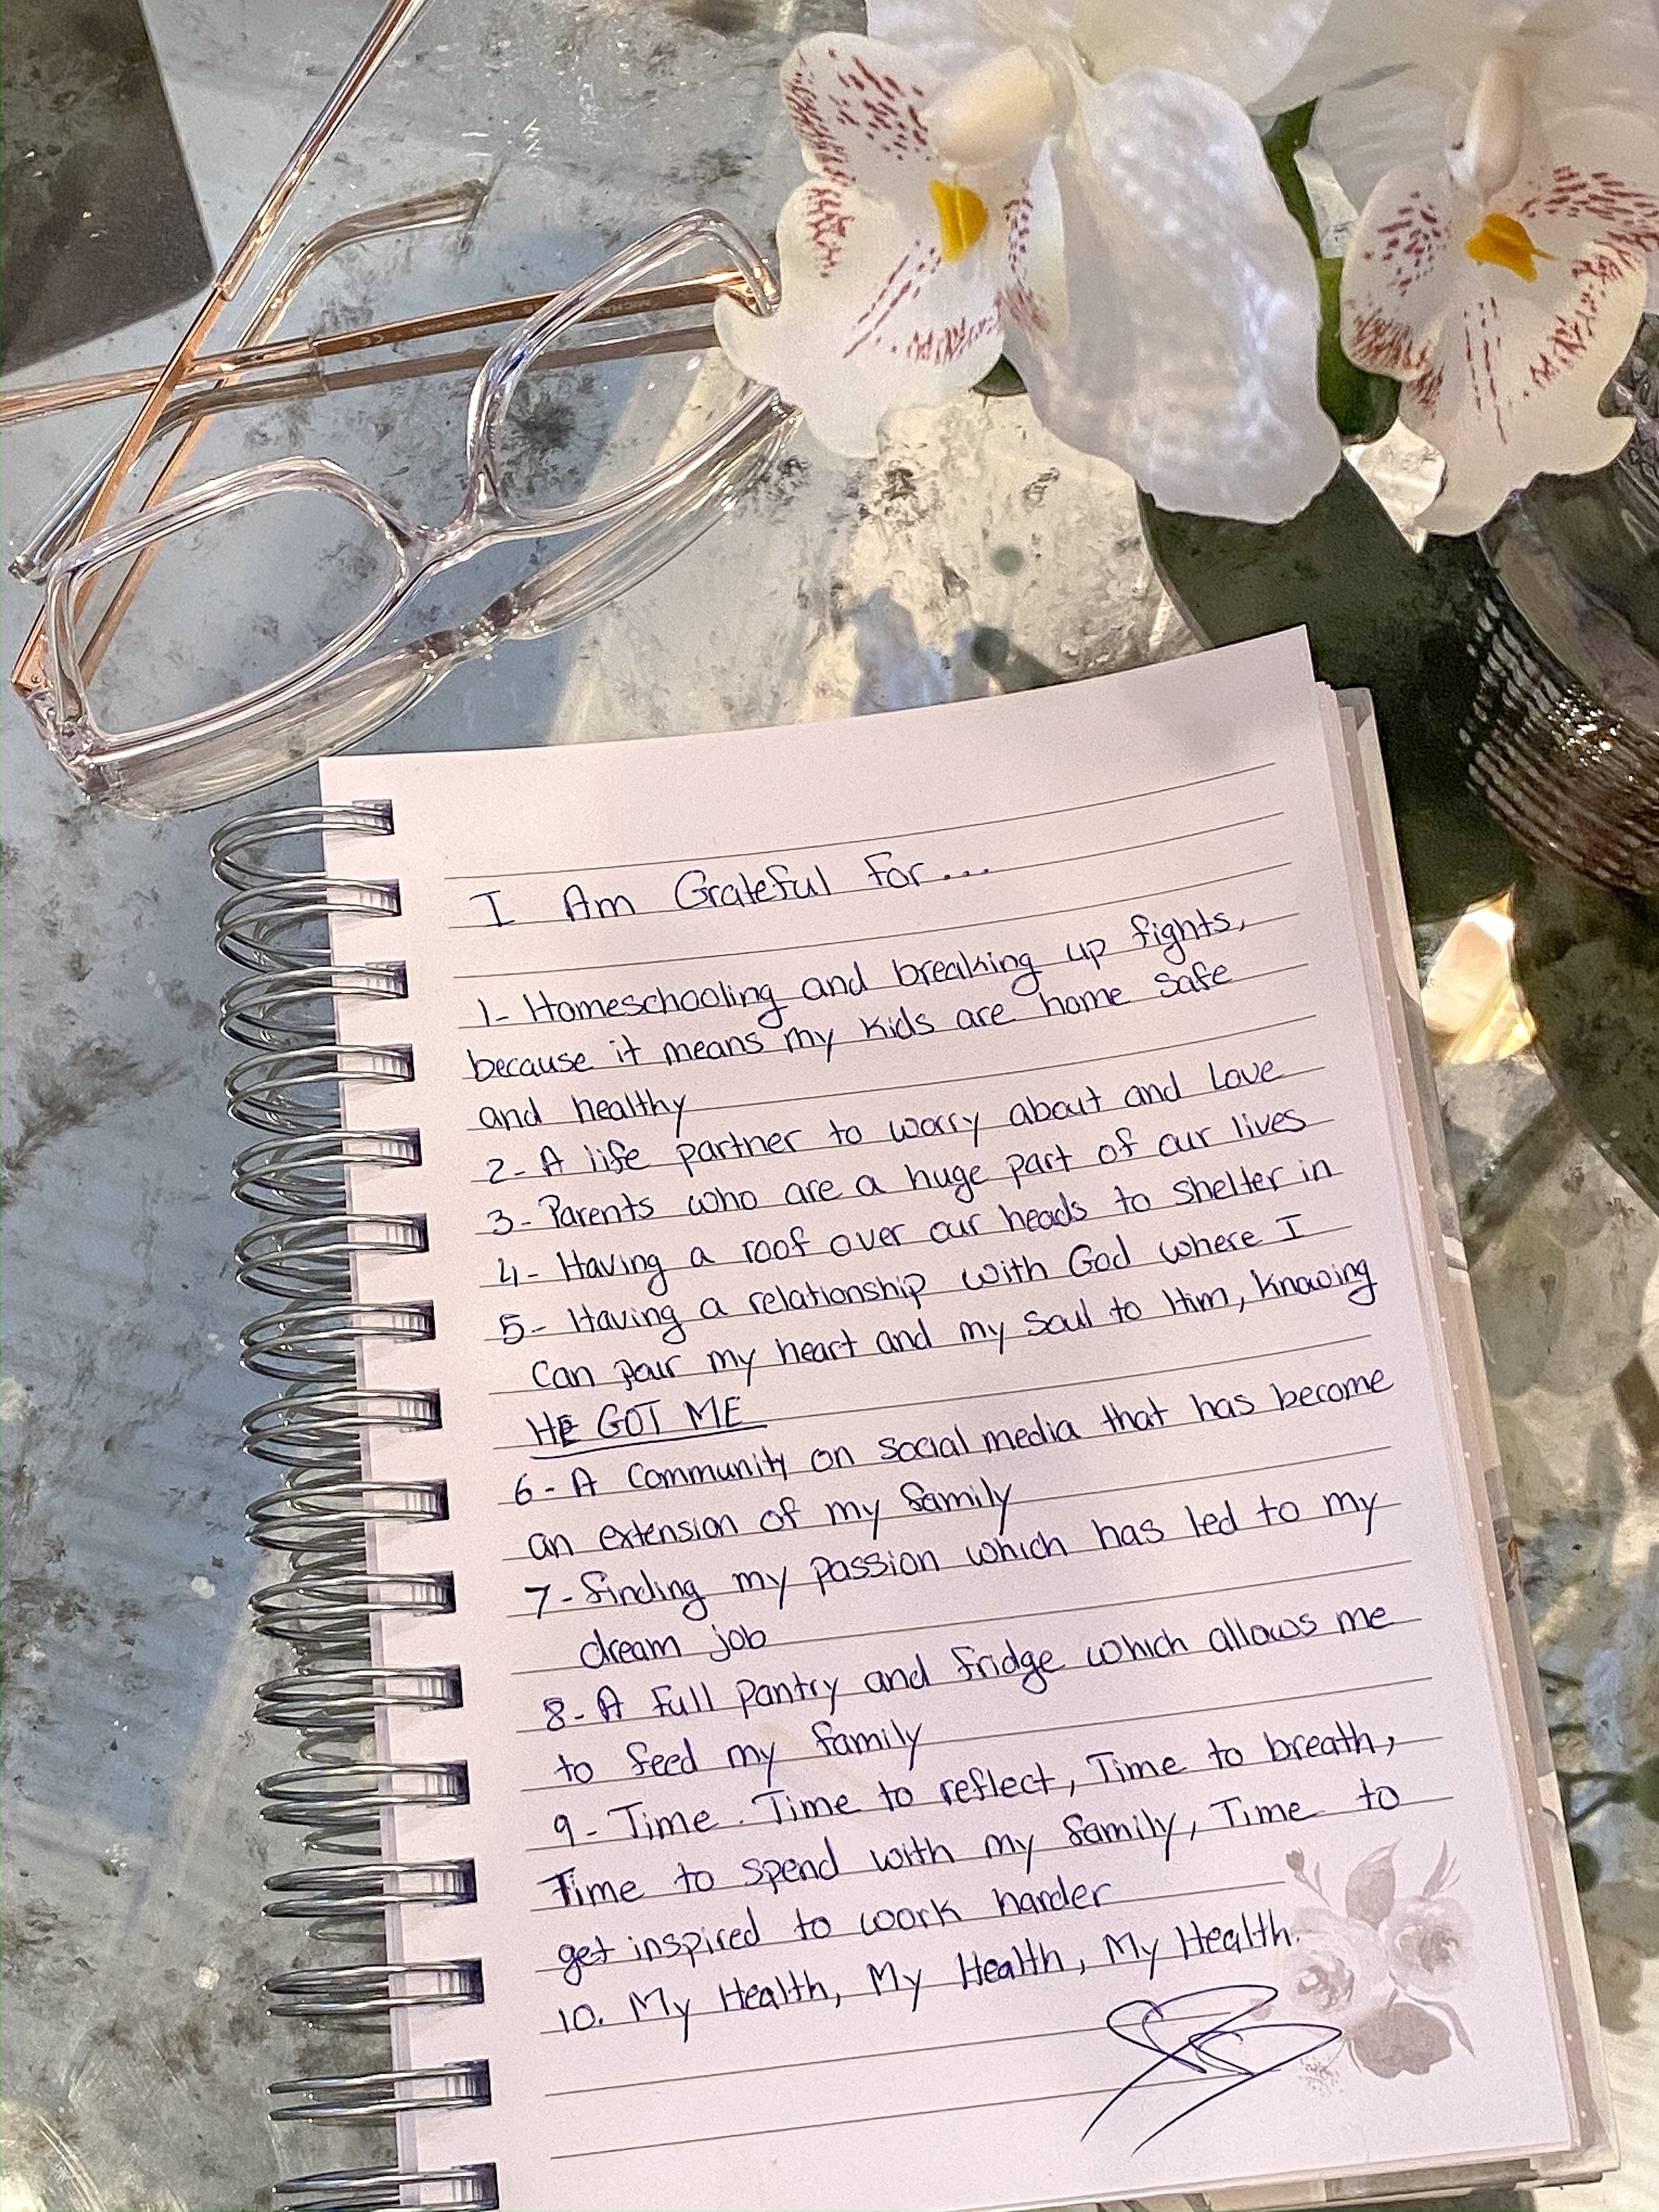 I Am Grateful for...
1- Homeschooling and breaking up fights,
because it means my kids are home safe
and healthy
2- A life partner to worry about and Love
3- Parents who are a huge part of our lives
4- Having a roof over our heads to shelter in
5- Having a relationship with God where I
Can pour my heart and my soul to Him, knowing
HE GOT ME
6- A Community on social media that has become
an extension of my family
7- finding my passion which has led to my
dream job
8- A full pantry and fridge which allows me
to feed my family
9- Time. Time to reflect, Time to breath,
Time to spend with my family, Time to
get inspired to work harder
10. My Health, My Health, My Health.